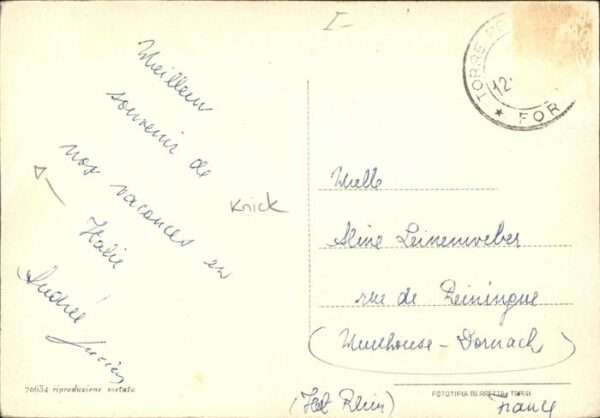 I-
TORRE PE
12.
★ FOR
Meilleur
souvenir de
nos vacances en
Italie
Andrée
Lucien
Knick
Melle
Aline Leinenweber
rue de Reiningue
(Mulhouse - Dornach)
(Ht Rhin) France
70634 riproduzione vietata
FOTOTIPIA BERRETTA TERNI